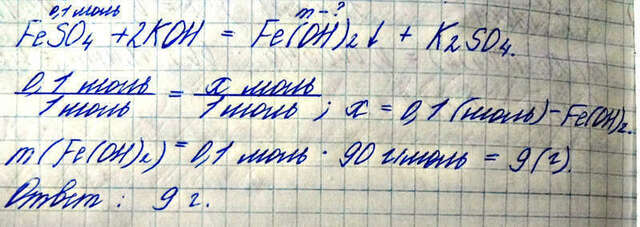 0,1 моль m-?
FeSO4 + 2KOH = Fe(OH)2↓ + K2SO4.
0,1 моль / 1 моль = x моль / 1 моль ; x = 0,1 (моль) - Fe(OH)2.
m(Fe(OH)2) = 0,1 моль · 90 г/моль = 9 (г).
Ответ : 9 г.